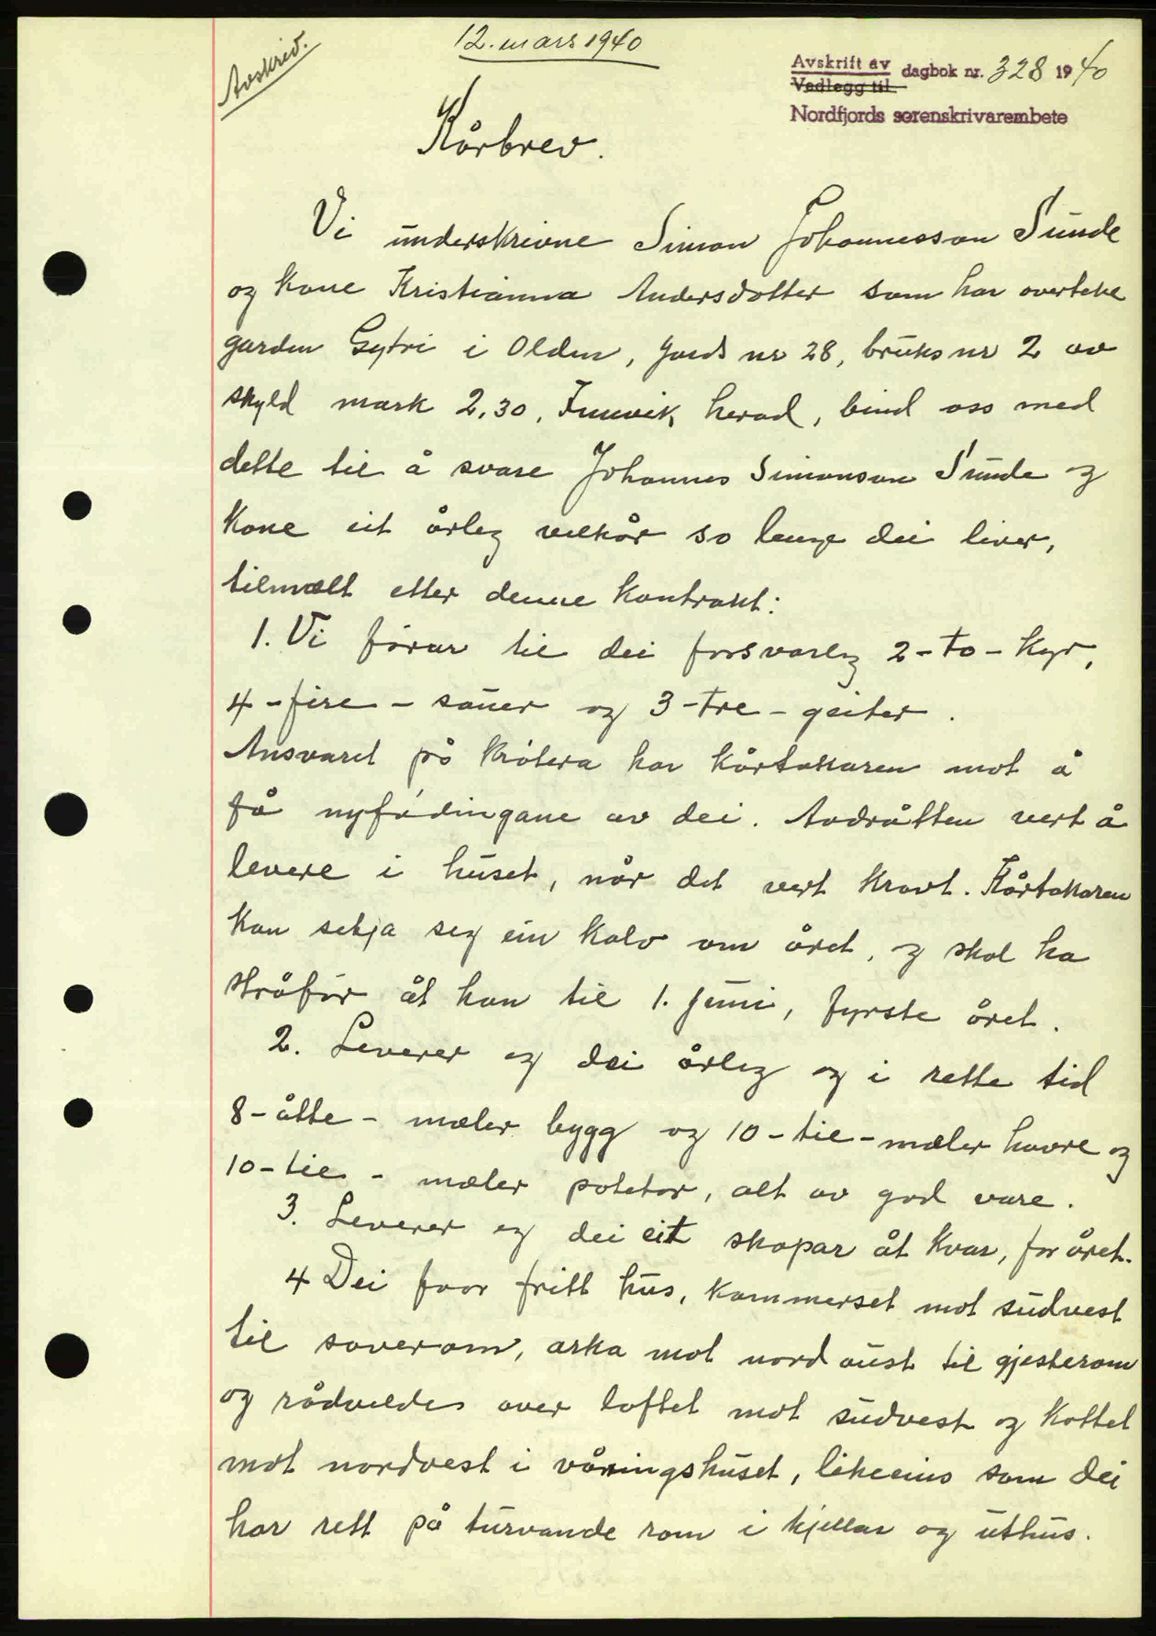 Avskriv.
12. mars 1940
Avskrift av
Vedlegg til
dagbok nr. 328 1940
Nordfjords sorenskrivarembete
Kårbrev.
Vi underskrivne Simon Johannesson Sunde
og kone Kristianna Andersdotter som har overteke
garden Gytri i Olden, gards nr 28, bruks nr 2 av
skyld mark 2,30, Innvik herad, bind oss med
dette til å svare Johannes Simonson Sunde og
Kone eit årleg velkår so lenge dei liver,
tilmælt etter denne kontrakt:
1. Vi fórar til dei forsvarleg 2 - to - kyr,
4 - fire - sauer og 3 - tre - geiter.
Ansvaret på krótera har kårtakaren mot å
få nyfødingane av dei. Avdråtten vert å
levere i huset, når det vert kravt. Kårtakaren
kan setja seg ein kalv om året, og skal ha
stråfór åt han til 1. juni, fyrste året.
2. Leverer og dei årleg og i rette tid
8 - åtte - mæler bygg og 10 - tie - mæler havre og
10 - tie - mæler poteter, alt av god vare.
3. Leverer og dei eit skopar åt kvar, for året.
4 Dei faar fritt hus, kammerset mot sudvest
til soverom, arka mot nordaust til gjesterom
og rådvelde over loftet mot sudvest og kottet
mot nordvest i våningshuset, likeeins som dei
har rett på turvande rom i kjellar og uthus.